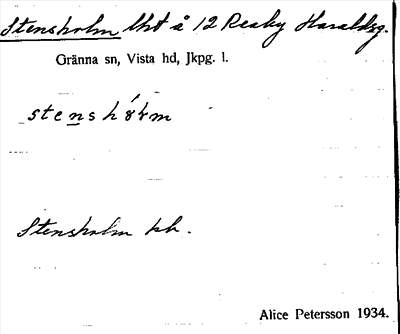 Stensholm lht å 12 Reaby Haraldsg.
Gränna sn, Vista hd, Jkpg. l.
stensholm
Stensholm kh.
Alice Petersson 1934.